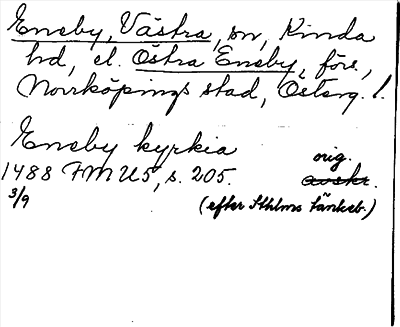 Eneby, Västra, sn, Kinda
hd, el. Östra Eneby, förs.,
Norrköpings stad, Österg. l.
Eneby kyrkia
orig.
1488 FMU5, s. 205. avskr.
3/9 (efter Sthlms tänkeb.)